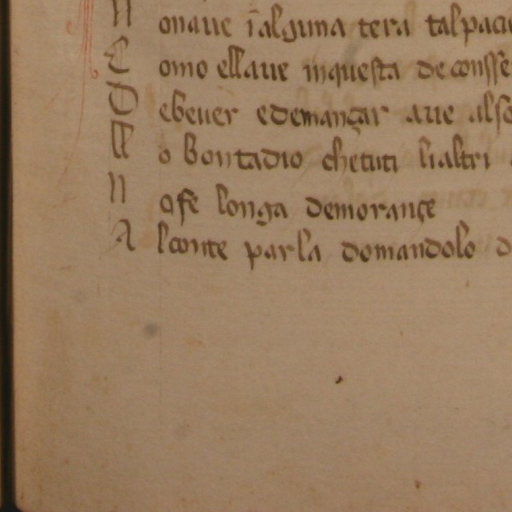 N onaue ī alguna tera talpacie
C omo ellaue inquesta de consse
D ebeuer e demançar aue also
L o bontadio che tuti li altri
N ofe longa demorançe
A lconte parla domandolo d